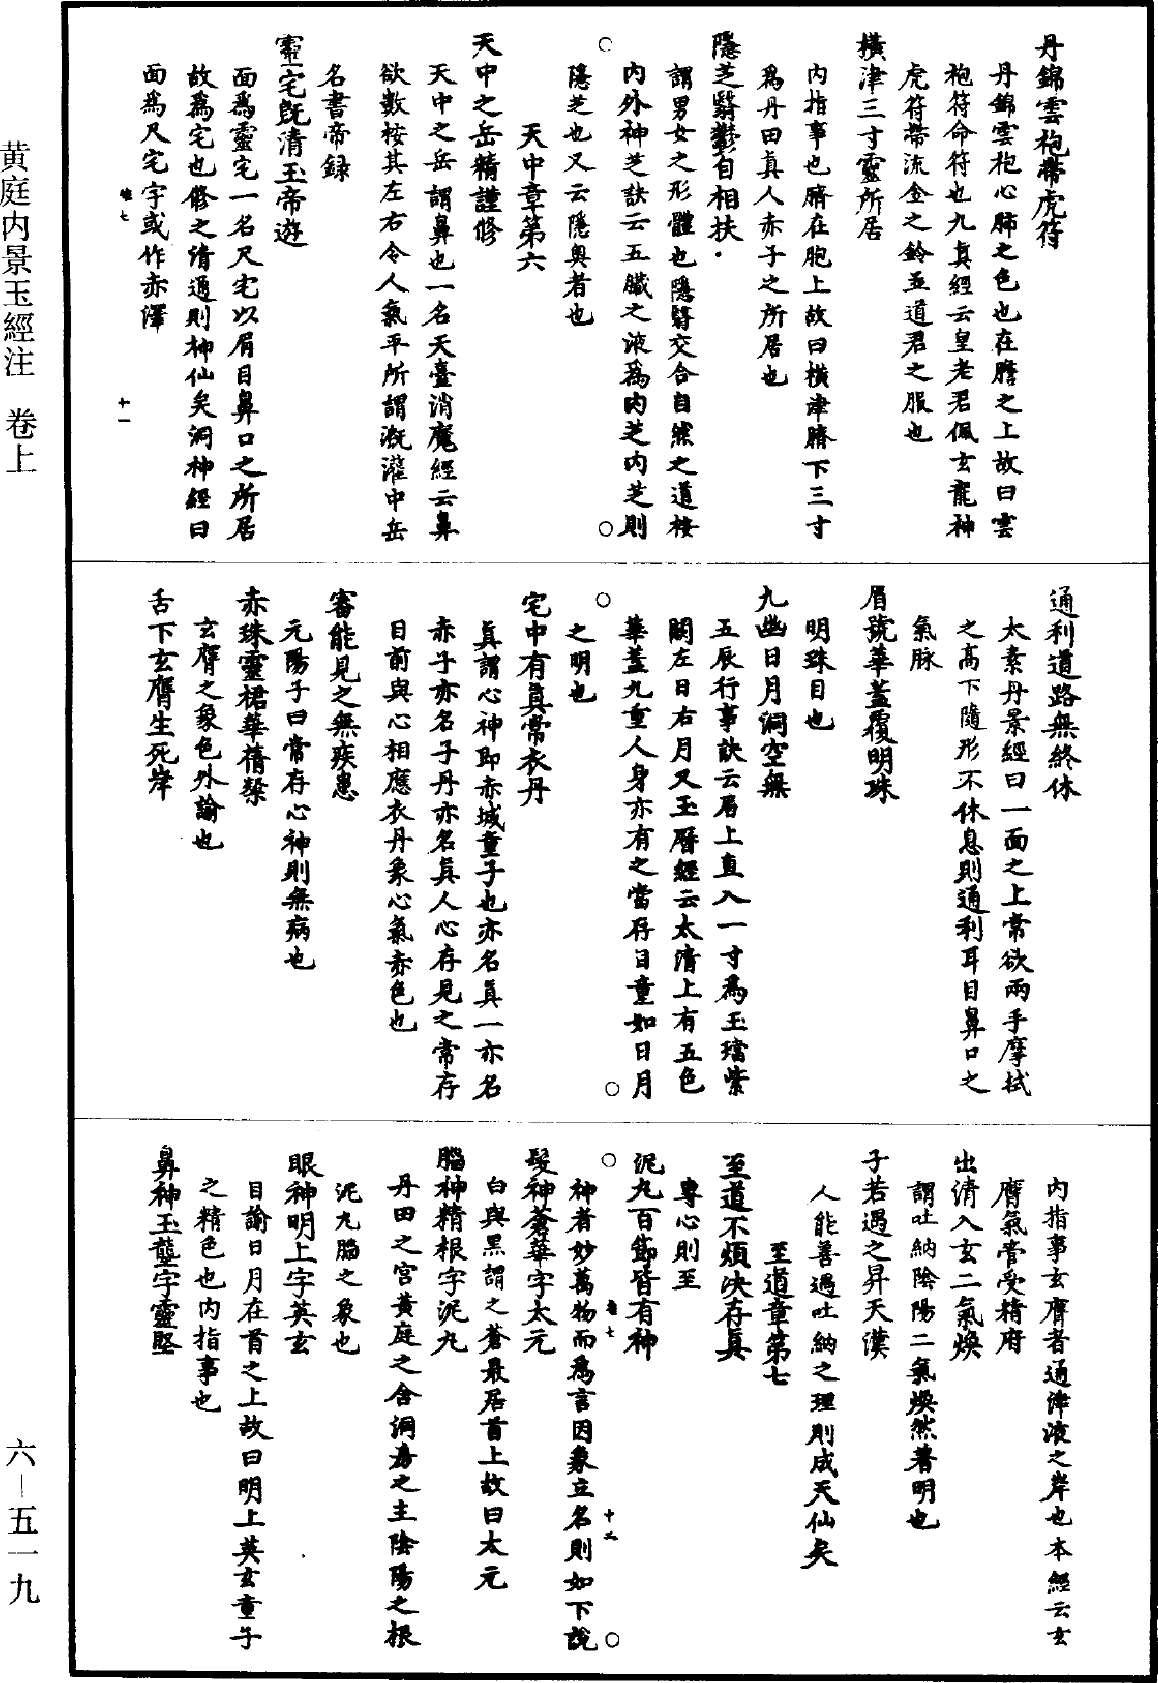 丹錦雲袍帶虎符
丹錦雲袍心肺之色也在膽之上故曰雲
袍符命符也九真經云皇老君佩玄龍神
虎符帶流金之鈴五道君之服也
橫津三寸靈所居
內指事也臍在胞上故曰橫津臍下三寸
爲丹田真人赤子之所居也
隱芝翳鬱自相扶
謂男女之形體也隱翳交合自然之道按
內外神芝訣云五臟之液爲內芝內芝則
隱芝也又云隱奥者也
天中章第六
天中之岳精謹修
天中之岳謂鼻也一名天臺消魔經云鼻
欲數按其左右令人氣平所謂溉灌中岳
名書帝録
靈宅既清玉帝遊
面爲靈宅一名尺宅以眉目鼻口之所居
故爲宅也修之清通則神仙矣洞神經曰
面爲尺宅字或作赤澤
十一
通利道路無終休
太素丹景經曰一面之上常欲兩手摩拭
之高下隨形不休息則通利耳目鼻口之
氣脉
眉號華蓋覆明珠
明珠目也
九幽日月洞空無
五辰行事訣云眉上直入一寸爲玉璫紫
闕左日右月又玉曆經云太清上有五色
華蓋九重人身亦有之當存目童如日月
之明也
宅中有真常衣丹
真謂心神即赤城童子也亦名真一亦名
赤子亦名子丹亦名真人心存見之常存
目前與心相應衣丹象心氣赤色也
審能見之無疾患
元陽子曰常存心神則無病也
赤珠靈裙華蒨粲
玄膺之象色外諭也
舌下玄膺生死岸
內指事玄膺者通津液之岸也本經云玄
膺氣管受精府
出清入玄二氣煥
謂吐納陰陽二氣煥然著明也
子若遇之昇天漢
人能善過吐納之理則成天仙矣
至道章第七
至道不煩決存真
專心則至
泥丸百節皆有神
神者妙萬物而爲言因象立名則如下說
髮神蒼華字太元
白與黑謂之蒼最居首上故曰太元
腦神精根字泥丸
丹田之宮黃庭之舍洞房之主陰陽之根
泥丸腦之象也
眼神明上字英玄
目諭日月在首之上故曰明上英玄童子
之精色也內指事也
鼻神玉壟字靈堅
黄庭内景玉經注　卷上
六—五一九